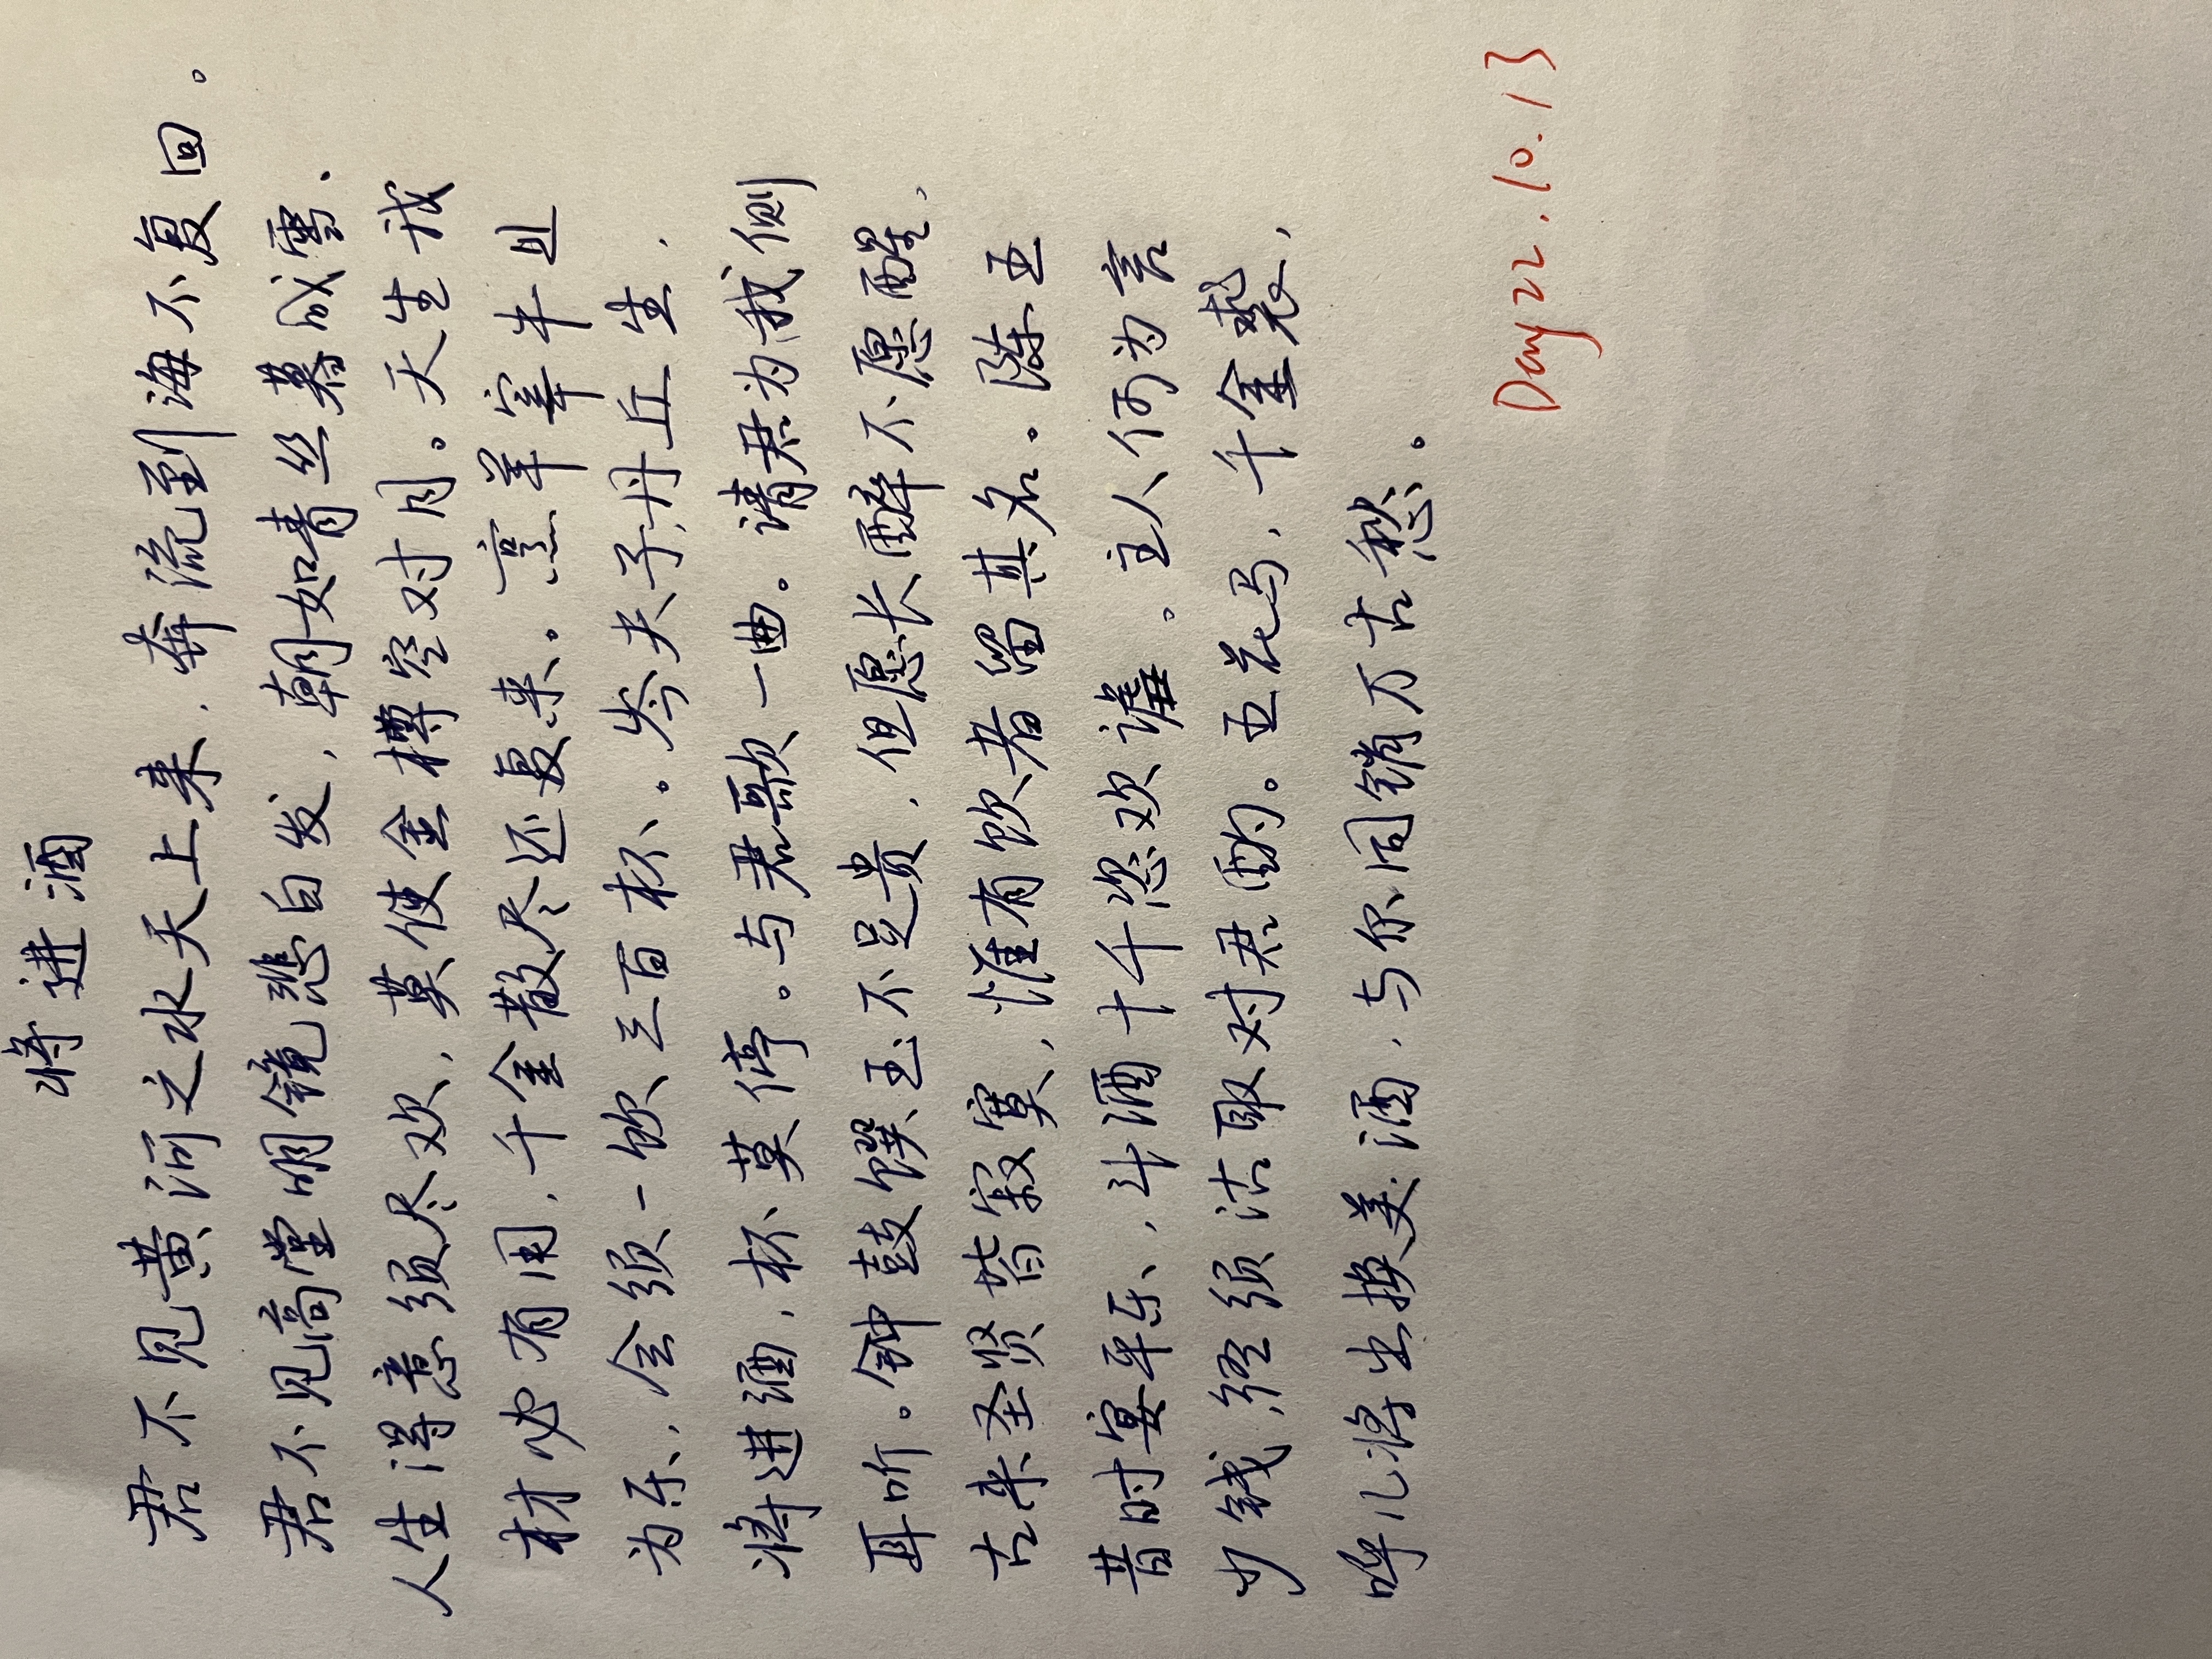 将进酒
君不见黄河之水天上来，奔流到海不复回。
君不见高堂明镜悲白发，朝如青丝暮成雪。
人生得意须尽欢，莫使金樽空对月。天生我
材必有用，千金散尽还复来。烹羊宰牛且
为乐，会须一饮三百杯。岑夫子，丹丘生，
将进酒，杯莫停。与君歌一曲。请君为我侧
耳听。钟鼓馔玉不足贵，但愿长醉不愿醒，
古来圣贤皆寂寞，惟有饮者留其名。陈王
昔时宴平乐，斗酒十千恣欢谑。主人何为言
少钱，径须沽取对君酌。五花马，千金裘，
呼儿将出换美酒，与尔同销万古愁。
Day22.10.13